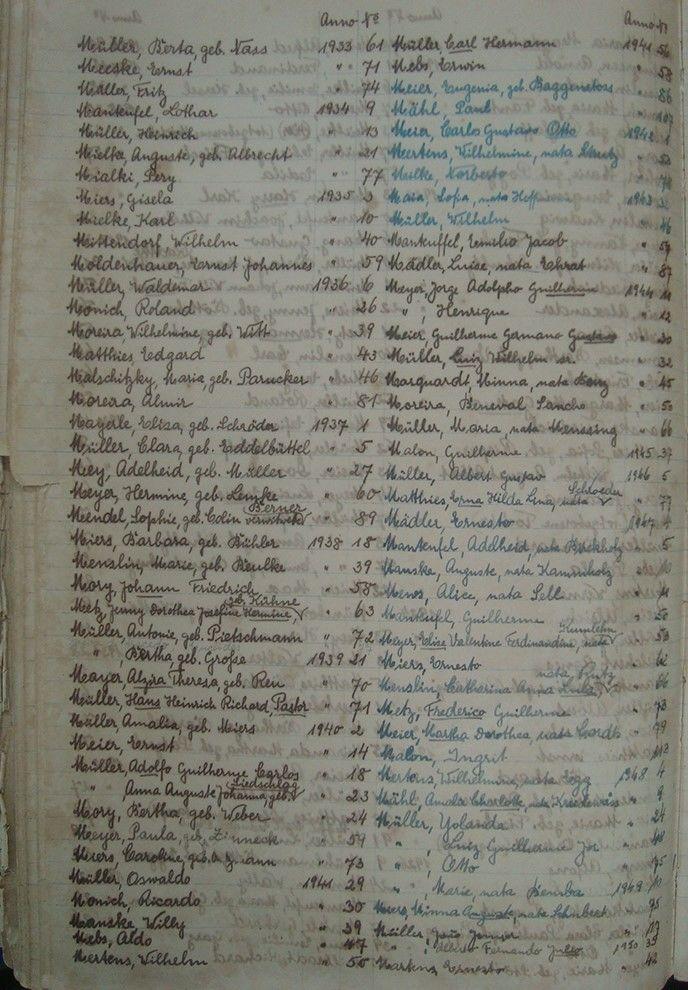 Anno Nº
Müller, Berta, geb. Nass 1933 61
Meeske, Ernst " " 71
Müller, Fritz " " 74
Manteufel, Lothar 1934 9
Müller, Heinrich " 13
Mielka, Auguste, geb. Albrecht " 21
Mialki, Pery " 77
Miers, Gisela 1935 3
Mielke, Karl " 10
Mittendorf, Wilhelm " 40
Moldenhauer, Ernst Johannes " 59
Müller, Waldemar 1936 6
Mönich, Roland " 26
Moreira, Wilhelmine, geb. Witt " 39
Matthies, Edgard " 43
Malschitzky, Maria, geb. Parucker " 46
Moreira, Almir " 81
Mayerle, Elisa, geb. Schröder 1937 1
Müller, Clara, geb. Eddelbüttel " 5
Mey, Adelheid, geb. Müller " 27
Meyer, Hermine, geb. Lemke " 60
Berner
Meendel, Sophie, geb. Colin verwitwete " 89
Miers, Barbara, geb. Bühler 1938 18
Menslin, Marie, geb. Beulke " 39
Mory, Johann Friedrich " 58
geb. Kühne
Metz, Jenny Dorothea Josefine Hermine, " 63
Müller, Antonie, geb. Pietschmann " 72
" , Bertha, geb. Grosse 1939 21
Mayer, Alzira Theresa, geb. Ren " 70
Müller, Hans Heinrich Richard, Pastor " 71
Müller Amalia, geb. Miers 1940 2
Meier, Ernst " 14
Müller, Adolfo Guilherme Carlos " 18
Liedschlag
" Anna Auguste Johanna, geb. " 23
Mory, Bertha, geb. Weber " 24
Meeyer, Paula, geb. Zinneck " 59
Miers, Caroline, geb. " 73
Müller, Oswaldo 1941 29
Mönich, Ricardo " 30
Manske, Willy " 39
Mebs, Aldo " 47
Mertens, Wilhelm " 50
Anno Nº
Müller, Carl Hermann 1941 56
Mebs, Erwin " 58
Meier, Eugenia, geb. Baggenstoss " 86
Mähl, Paul " 107
Meier, Carlos Gustavo Otto 1942 1
Mertens, Wilhelmine, nata "
Mulke, Norberto "
Maia, Sofia, nata 1943
Müller, Wilhelm " 46
Manteuffel, Emilio Jacob " 54
Mädler, Luise, nata Ehrat " 87
Meyer, Jorge Adolpho Guilherme 1944 11
" , Henrique " 12
Meier, Guilherme Germano Gustavo " 20
Müller, Luiz Wilhelm sr. " 32
Marquardt, Minna, nata " 45
Moreira, Beneval Sancho " 50
Müller, Maria, nata Menssing " 66
Malon, Guilherme 1945 37
Müller, Albert Gustav 1946 5
Schroeder
Matthies, Erna Hilda Lina, nata " 77
Mädler, Ernesto 1947 4
Manteufel, Adelheid, nata Birckholz " 5
Manske, Auguste, nata Kaminholz " 10
Menos, Alice, nata Sell " 11
Manteufel, Guilherme " 50
Meyer, Elise Valentine Ferdinandine, nata " 53
Meiers, Ernesto " 62
nata
Menslin, Catharina Anna " 66
Metz, Frederico Guilherme " 73
Meier, Martha Dorothea, nata " 99
Malon, Ingrit " 113
Mertens, Wilhelmine, nata 1948 4
Mühl, Amalie Charlotte, nata " 9
Müller, Yolanda " 24
" , Luiz Guilherme Jor " 48
" , Otto " 75
" , Marie, nata Bemba 1949 10
Miers, Minna Auguste, nata Schubert " 75
Müller, João Junior "
" , Fernando Julio 1950
Martens, Ernesto " 42